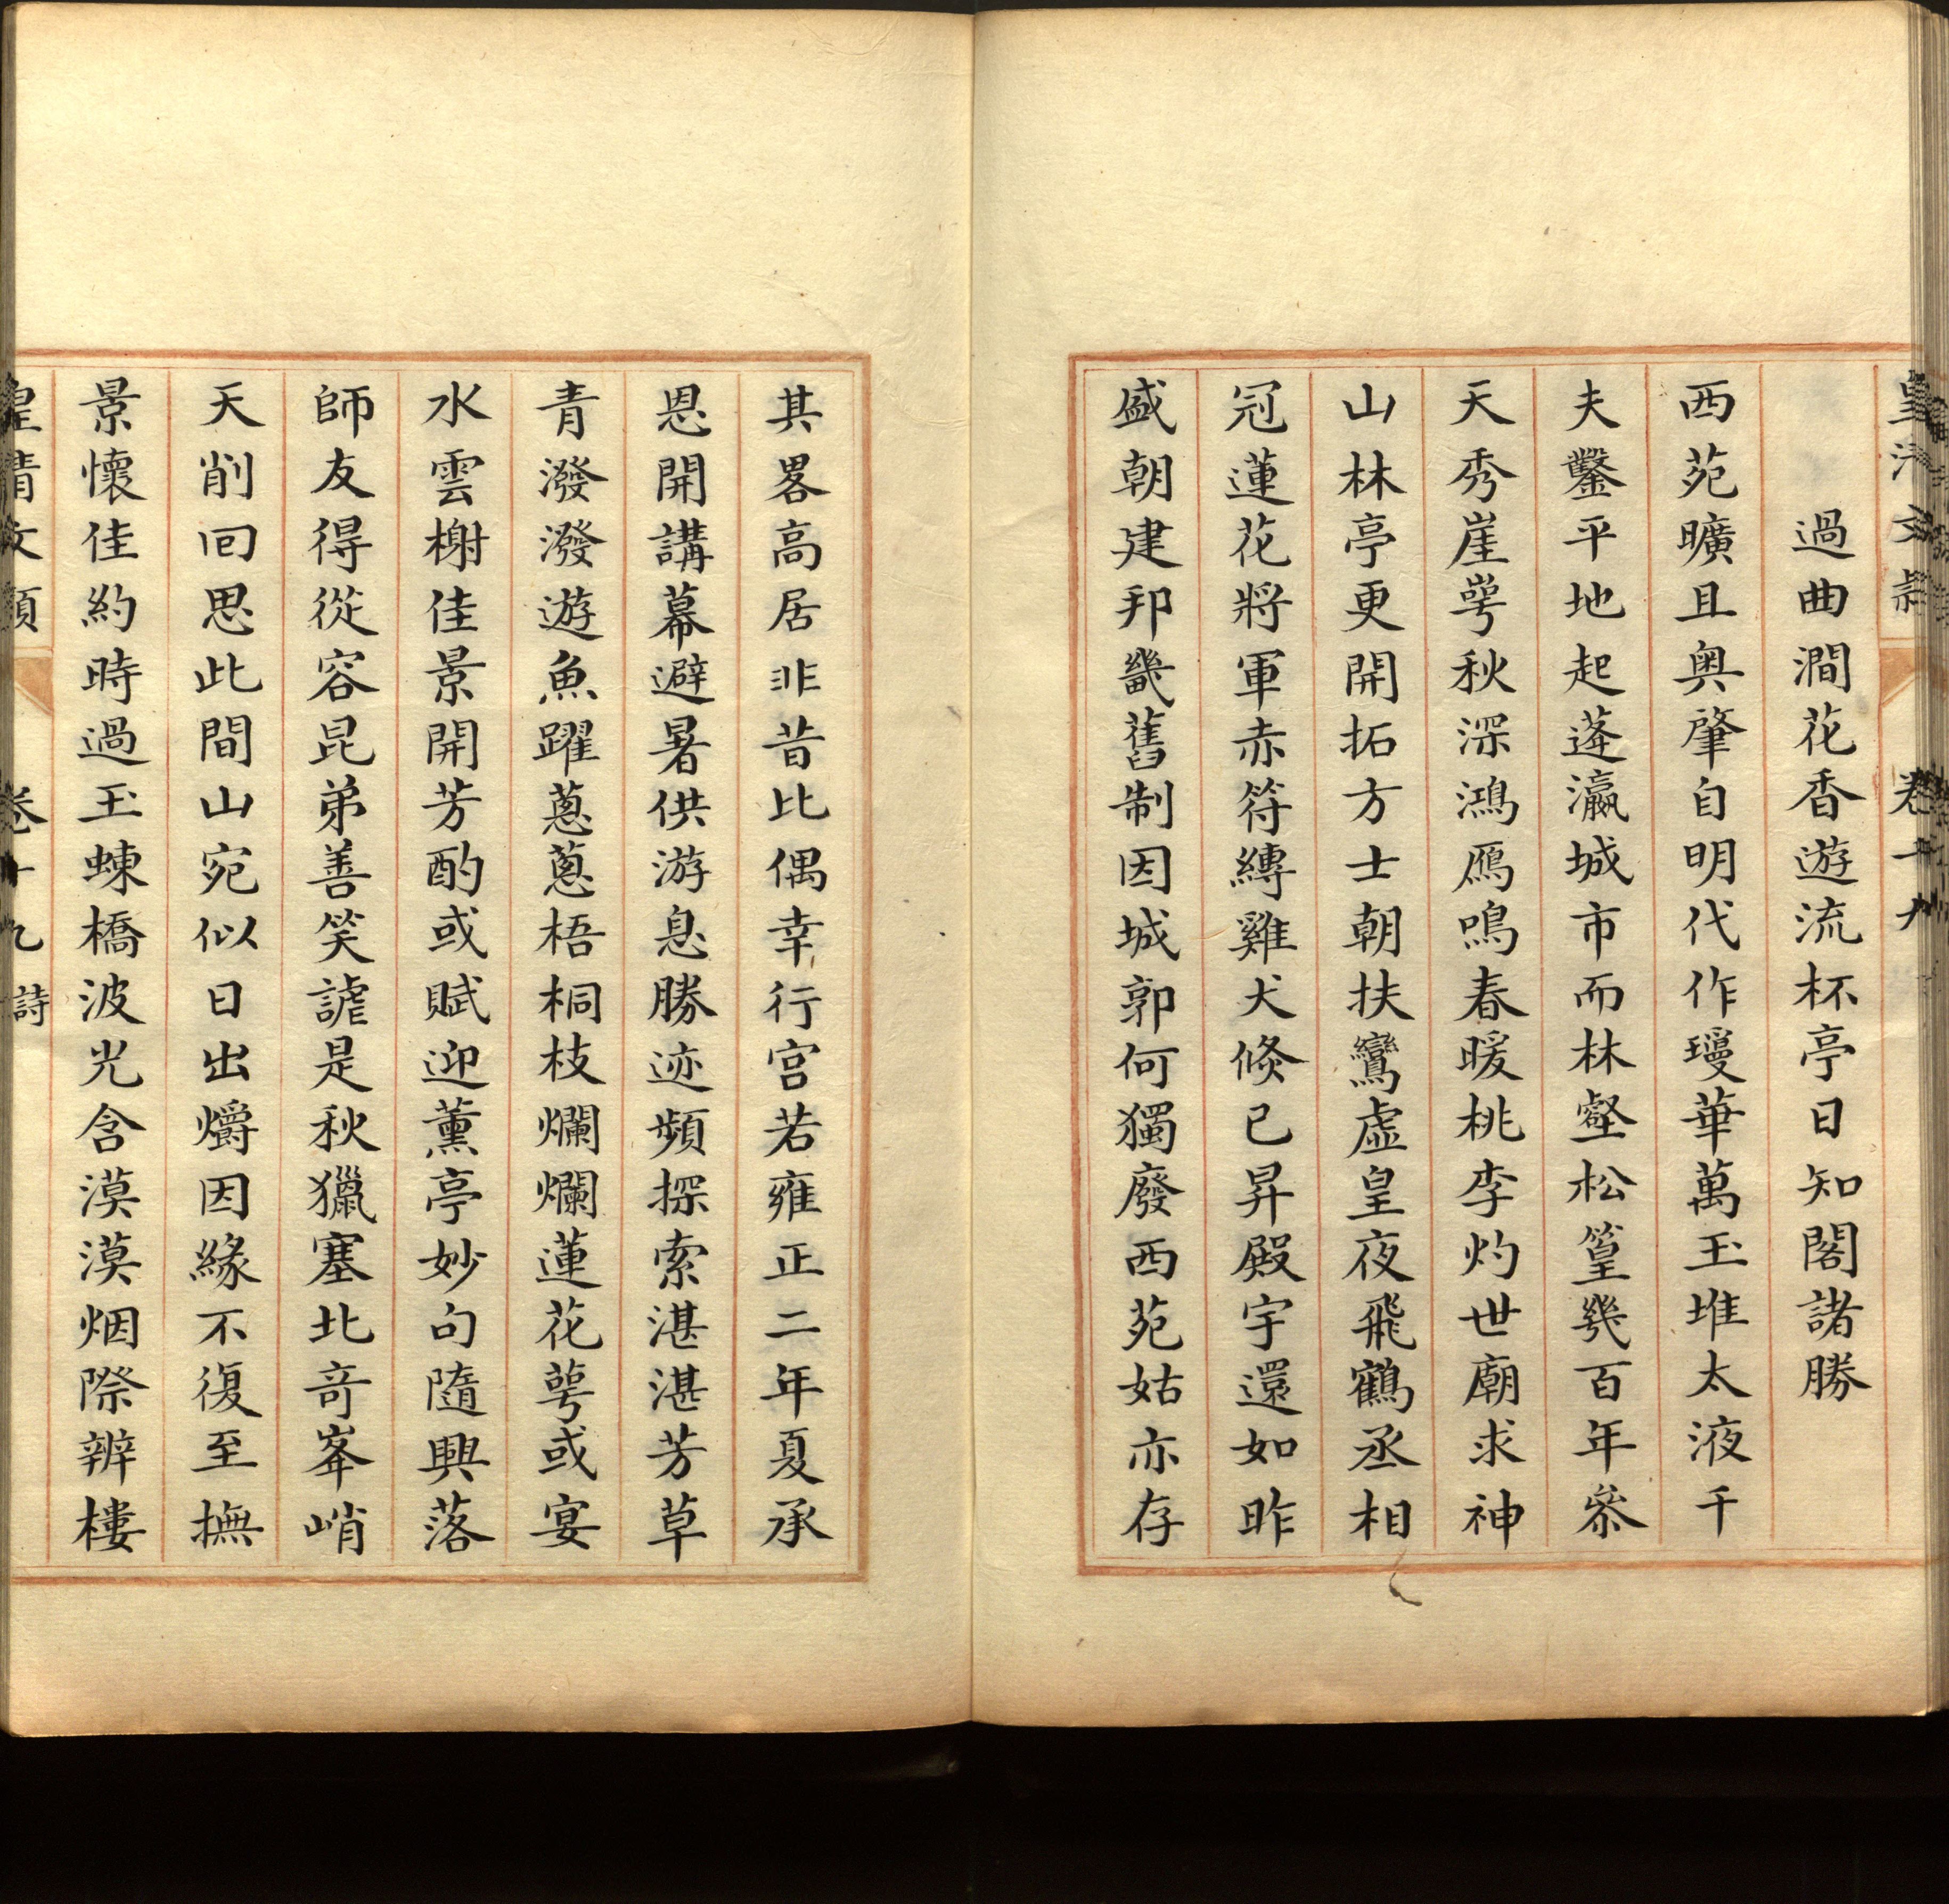 皇清文穎 卷十九
過曲澗花香遊流杯亭日知閣諸勝
西苑曠且奥肇自明代作璦華萬玉堆太液千
夫鑿平地起蓬瀛城市而林壑松篁幾百年叅
天秀崖蕚秋深鴻鴈鳴春暖桃李灼世廟求神
山林亭更開拓方士朝扶鸞虛皇夜飛鶴丞相
冠蓮花將軍赤符縳雞犬倐已昇殿宇還如昨
盛朝建邦畿舊制因城郭何獨廢西苑姑亦存
其畧高居非昔比偶幸行宫若雍正二年夏承
恩開講幕避暑供游息勝迹頻探索湛湛芳草
青潑潑遊魚躍蔥蔥梧桐枝爛爛蓮花蕚或宴
水雲榭佳景開芳酌或賦迎薰亭妙句隨興落
師友得從容昆弟善笑謔是秋獵塞北竒峯峭
天削囘思此間山宛似日出爝因緣不復至撫
景懷佳約時過玉蝀橋波光含漠漠烟際辨樓
皇清文穎 卷十九 詩